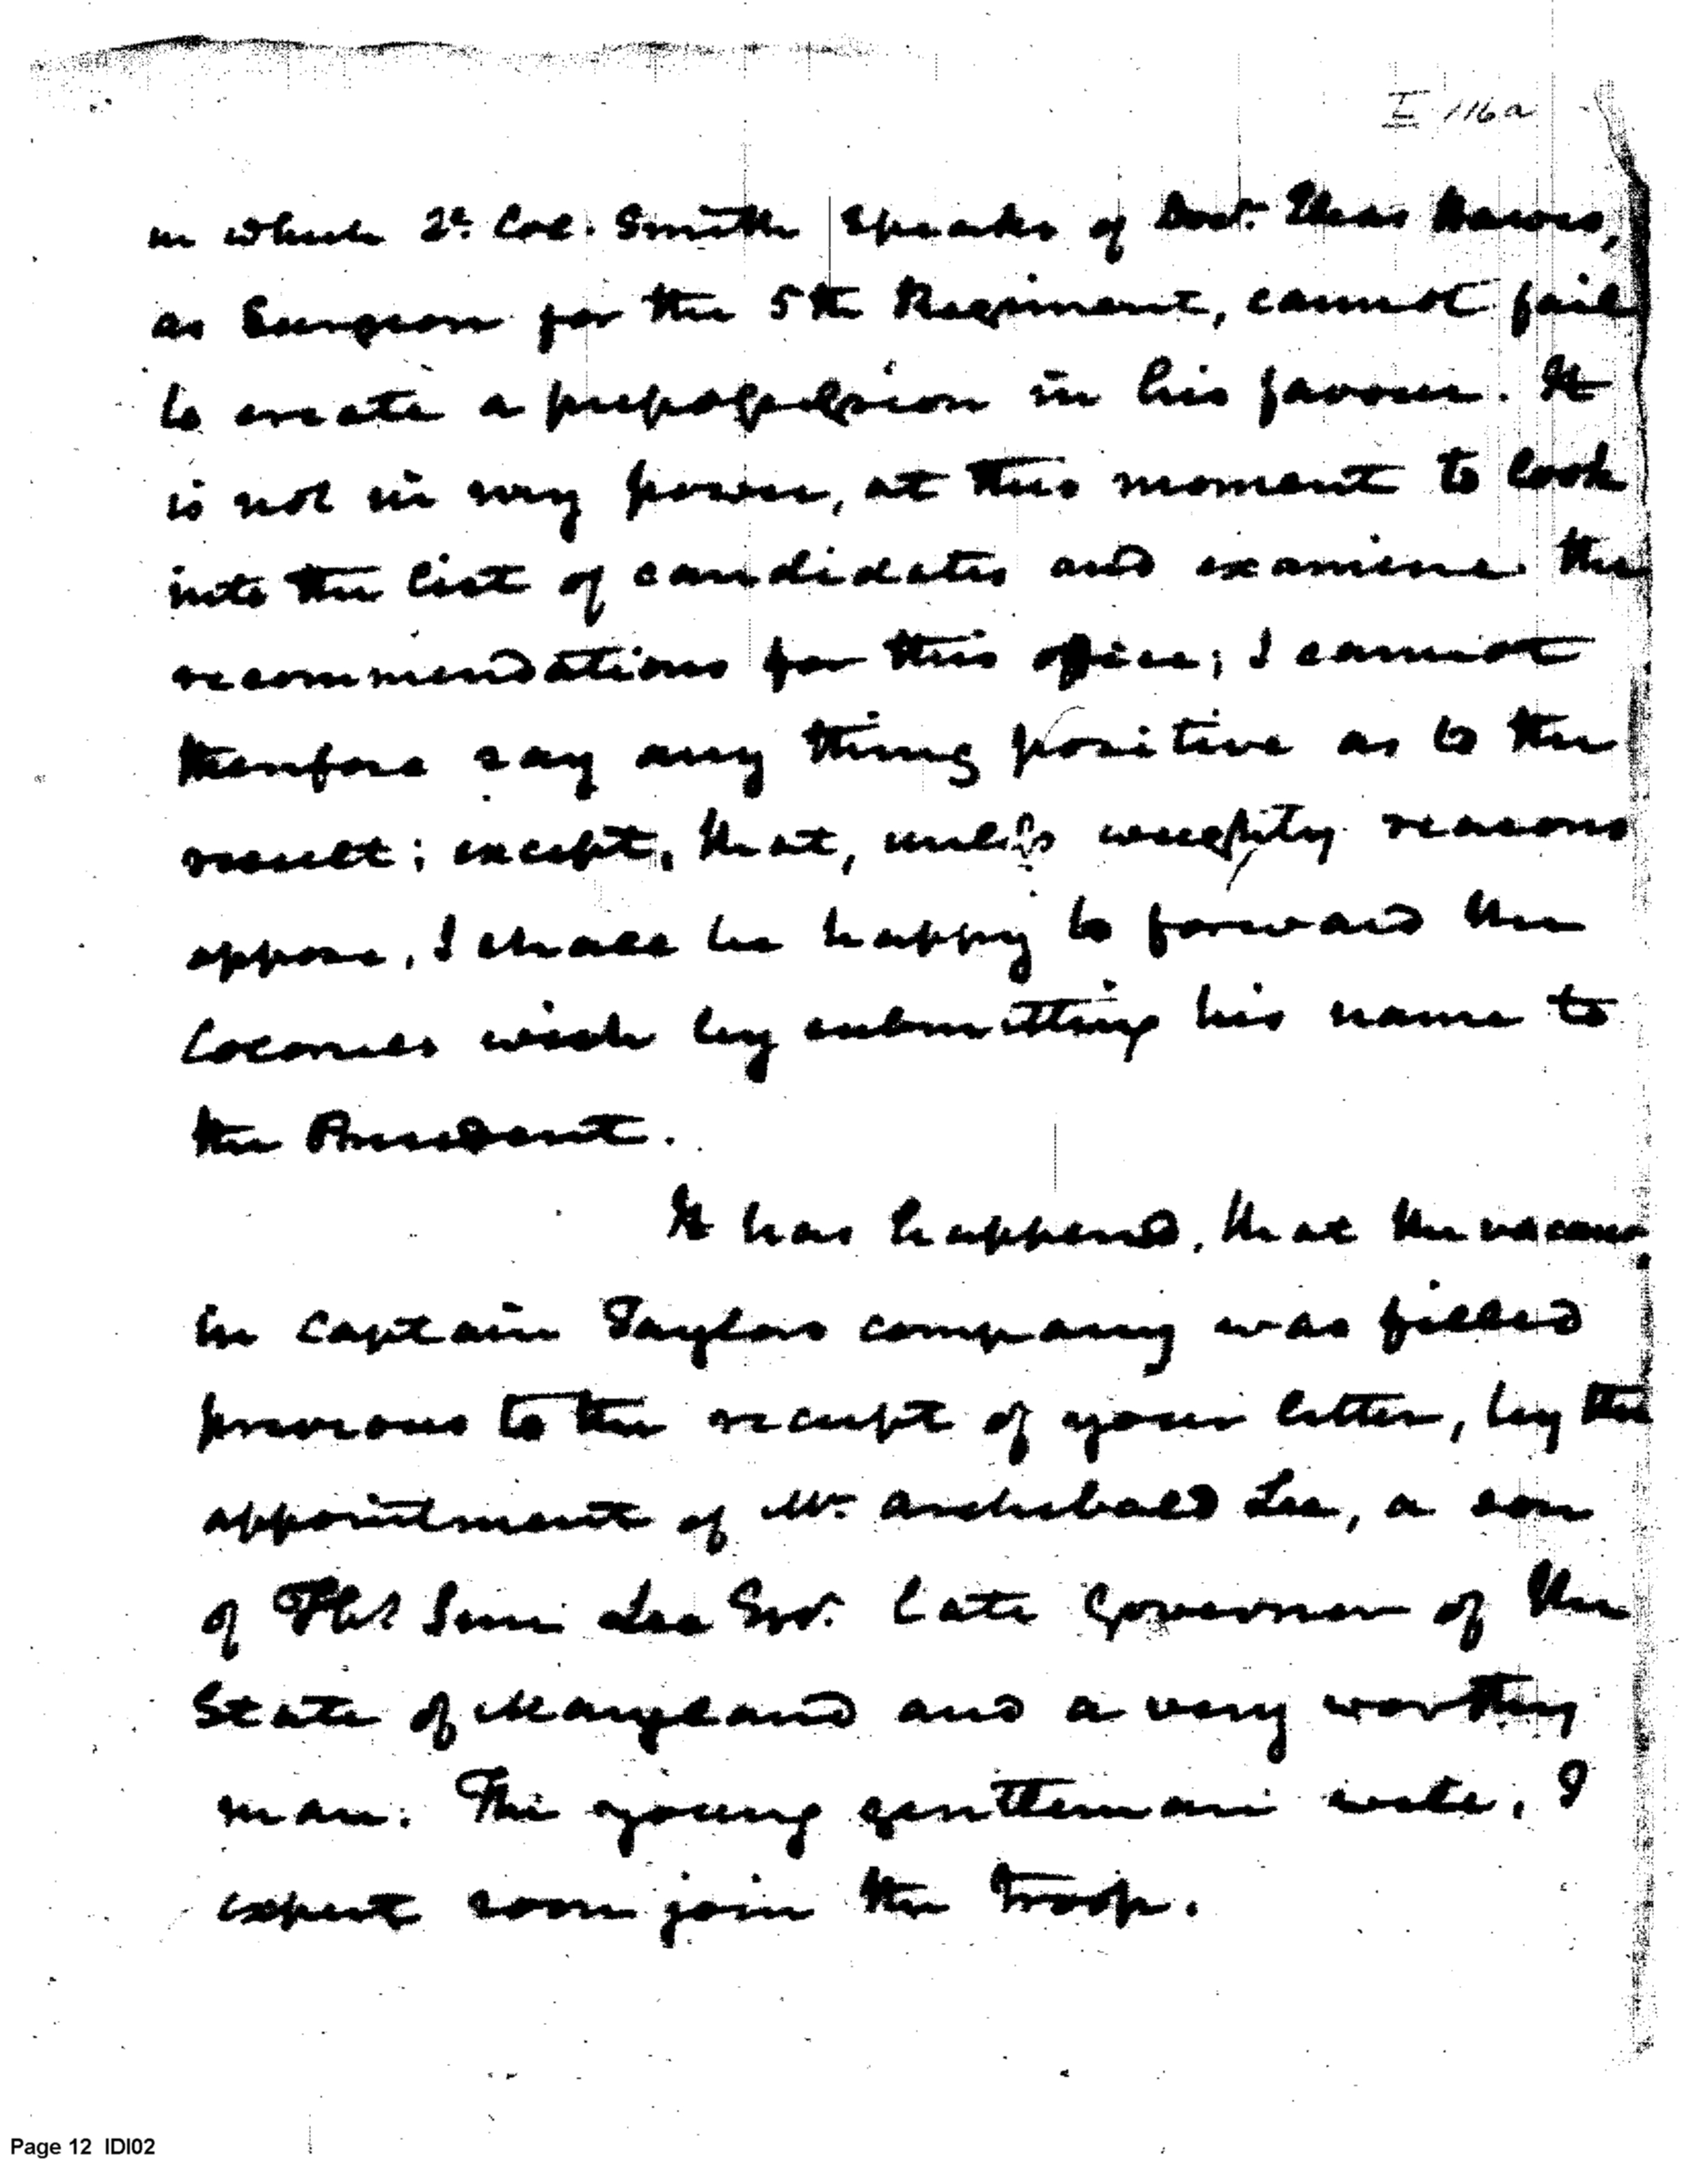 I 116a
in which Lt. Col. Smith speaks of Doct. Elias Dawes,
as Surgeon for the 5th Regiment, cannot fail
to create a prepossession in his favour. It
is not in my power, at this moment to look
into the list of candidates and examine the
recommendations for this office; I cannot
therefore say any thing positive as to the
result; except, that, unless weighty reasons
oppose, I shall be happy to forward the
Colonels wish by submitting his name to
the President.
It has happened, that the
in Captain Taylors company was filled
previous to the receipt of your letter, by the
appointment of Mr. Archibald Lee, a son
of Thos Sim Lee Esqr. late Governor of the
State of Maryland and a very worthy
man. The young gentleman will, I
expect soon join the Troop.
Page 12 IDI02